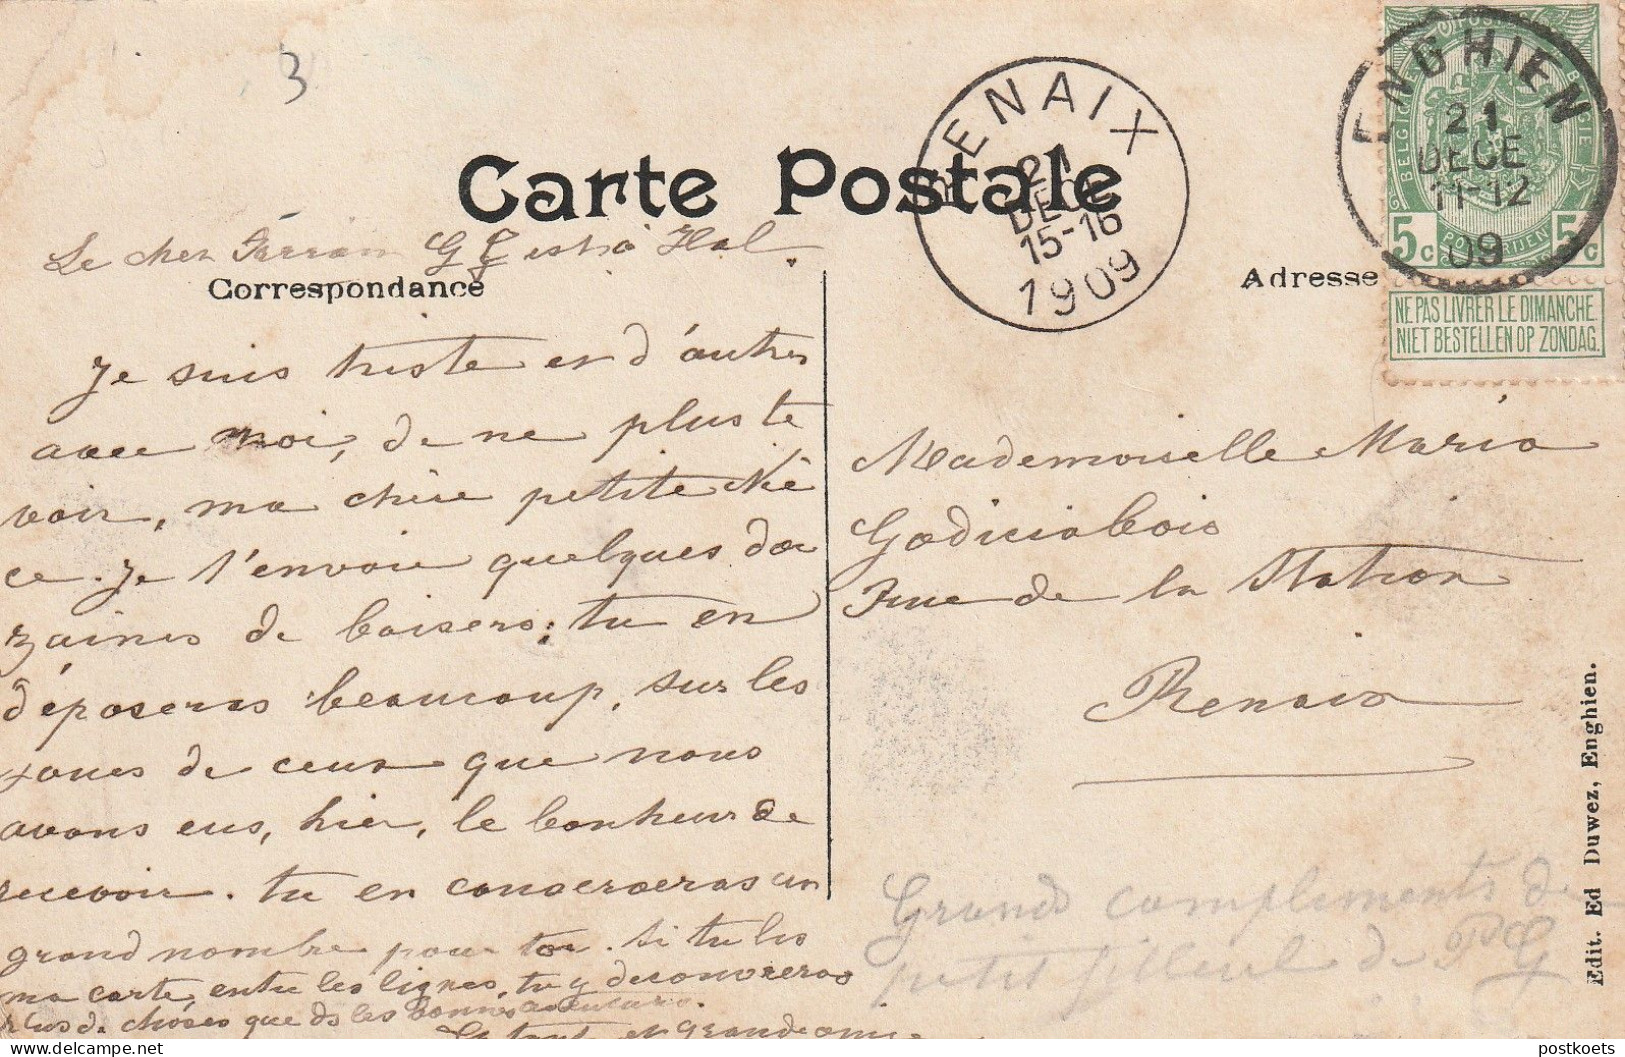 3
Carte Postale
RENAIX
21
DECE
15-16
1909
ENGHIEN
21
DECE
11-12
09
BELGIQUE
BELGIE
POSTERIJEN
5c 5c
NE PAS LIVRER LE DIMANCHE.
NIET BESTELLEN OP ZONDAG.
Le cher G est à Hal.
Correspondance
Adresse
Je suis triste et d'autres
avec moi, de ne plus te
voir, ma chère petite Niè
ce. Je t'envoie quelques dou
zaines de baisers; tu en
déposeras beaucoup, sur les
joues de ceux que nous
avons eus, hier, le bonheur de
recevoir. tu en conserveras un
grand nombre pour toi. Si tu lis
ma carte, entre les lignes, tu y découvriras
plus de choses que ds les bonnes aventures.
Le tout et grande amie
Mademoiselle Maria
Godiciabois
rue de la Station
Renaix
Grands compliments de
petit filleul de PG
Edit. Ed Duwez, Enghien.
postkoets